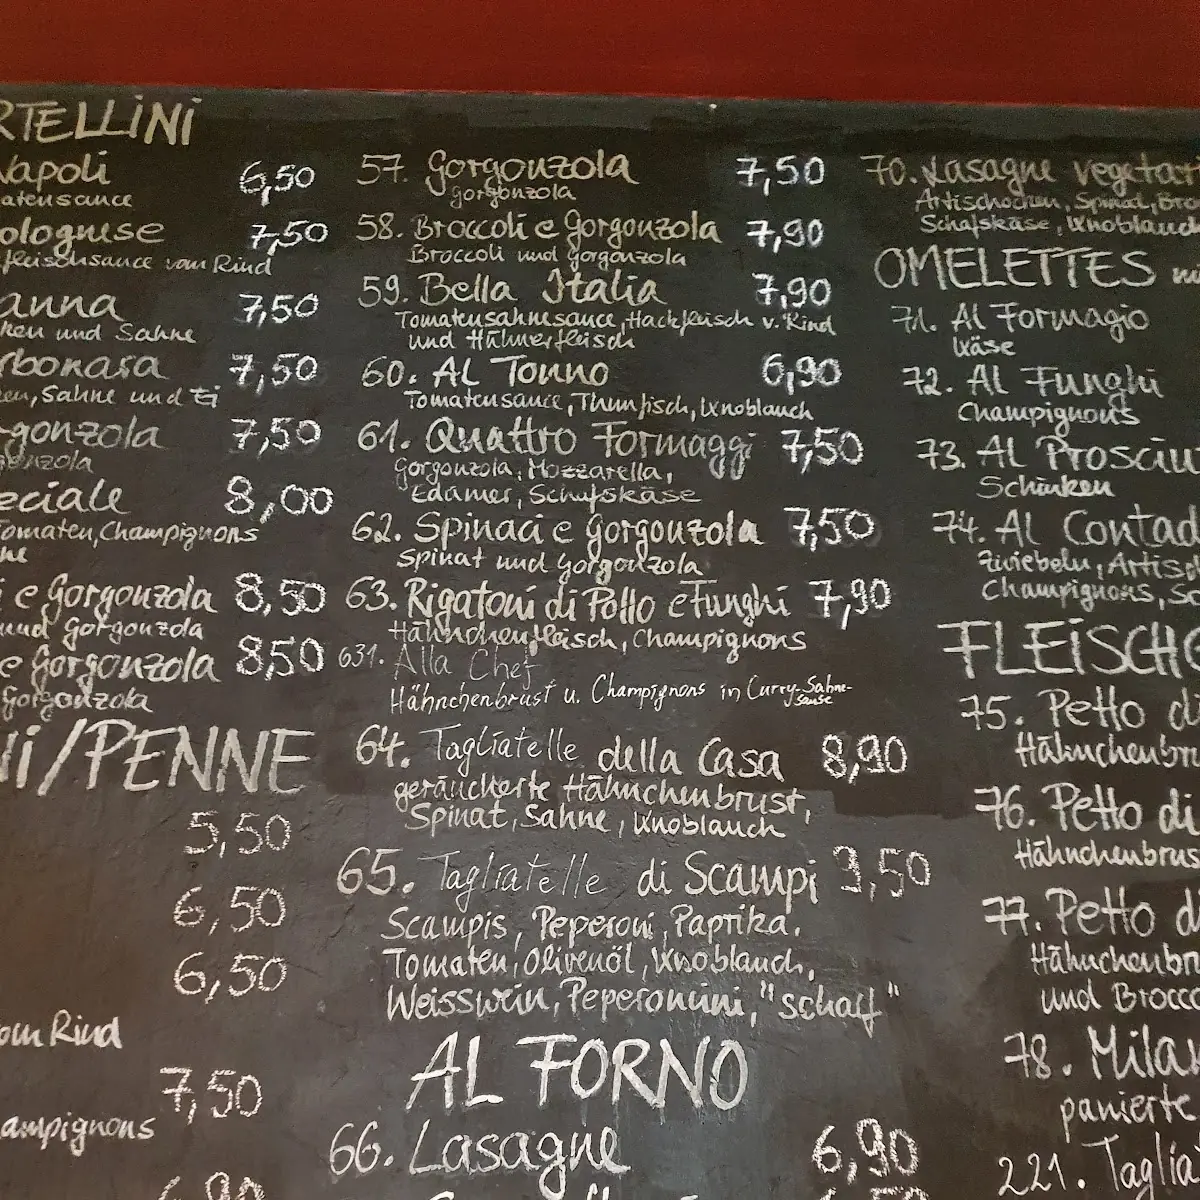 RTELLINI
Napoli 6,50
atensauce
olognese 7,50
fleischsauce vom Rind
anna 7,50
ken und Sahne
rbonara 7,50
en, Sahne und Ei
gonzola 7,50
gonzola
eciale 8,00
Tomaten, Champignons
ne
i e Gorgonzola 8,50
und Gorgonzola
e Gorgonzola 8,50
Gorgonzola
Ni/PENNE
5,50
6,50
6,50
om Rind
7,50
ampignons
6,90
57. Gorgonzola 7,50
Gorgonzola
58. Broccoli e Gorgonzola 7,90
Broccoli und Gorgonzola
59. Bella Italia 7,90
Tomatensahnesauce, Hackfleisch v. Rind
und Hühnerfleisch
60. Al Tonno 6,90
Tomatensauce, Thunfisch, Knoblauch
61. Quattro Formaggi 7,50
Gorgonzola, Mozzarella,
Edamer, Schafskäse
62. Spinaci e Gorgonzola 7,50
Spinat und Gorgonzola
63. Rigatoni di Pollo e Funghi 7,90
Hähnchenfleisch, Champignons
631. Alla Chef
Hähnchenbrust u. Champignons in Curry-Sahne-
sauce
64. Tagliatelle della Casa 8,90
geräucherte Hähnchenbrust,
Spinat, Sahne, Knoblauch
65. Tagliatelle di Scampi 9,50
Scampis, Peperoni, Paprika,
Tomaten, Olivenöl, Knoblauch,
Weisswein, Peperoncini, "scharf"
AL FORNO
66. Lasagne 6,90
70. Lasagne vegetar
Artischochen, Spinat, Bro
Schafskäse, Knoblauch
OMELETTES mi
71. Al Formagio
Käse
72. Al Funghi
Champignons
73. Al Prosciut
Schinken
74. Al Contad
Zwiebeln, Artisc
Champignons, Sc
FLEISCHG
75. Petto d
Hähnchenbr
76. Petto di
Hähnchenbrus
77. Petto d
Hähnchenbr
und Brocco
78. Milan
panierte
221. Taglia